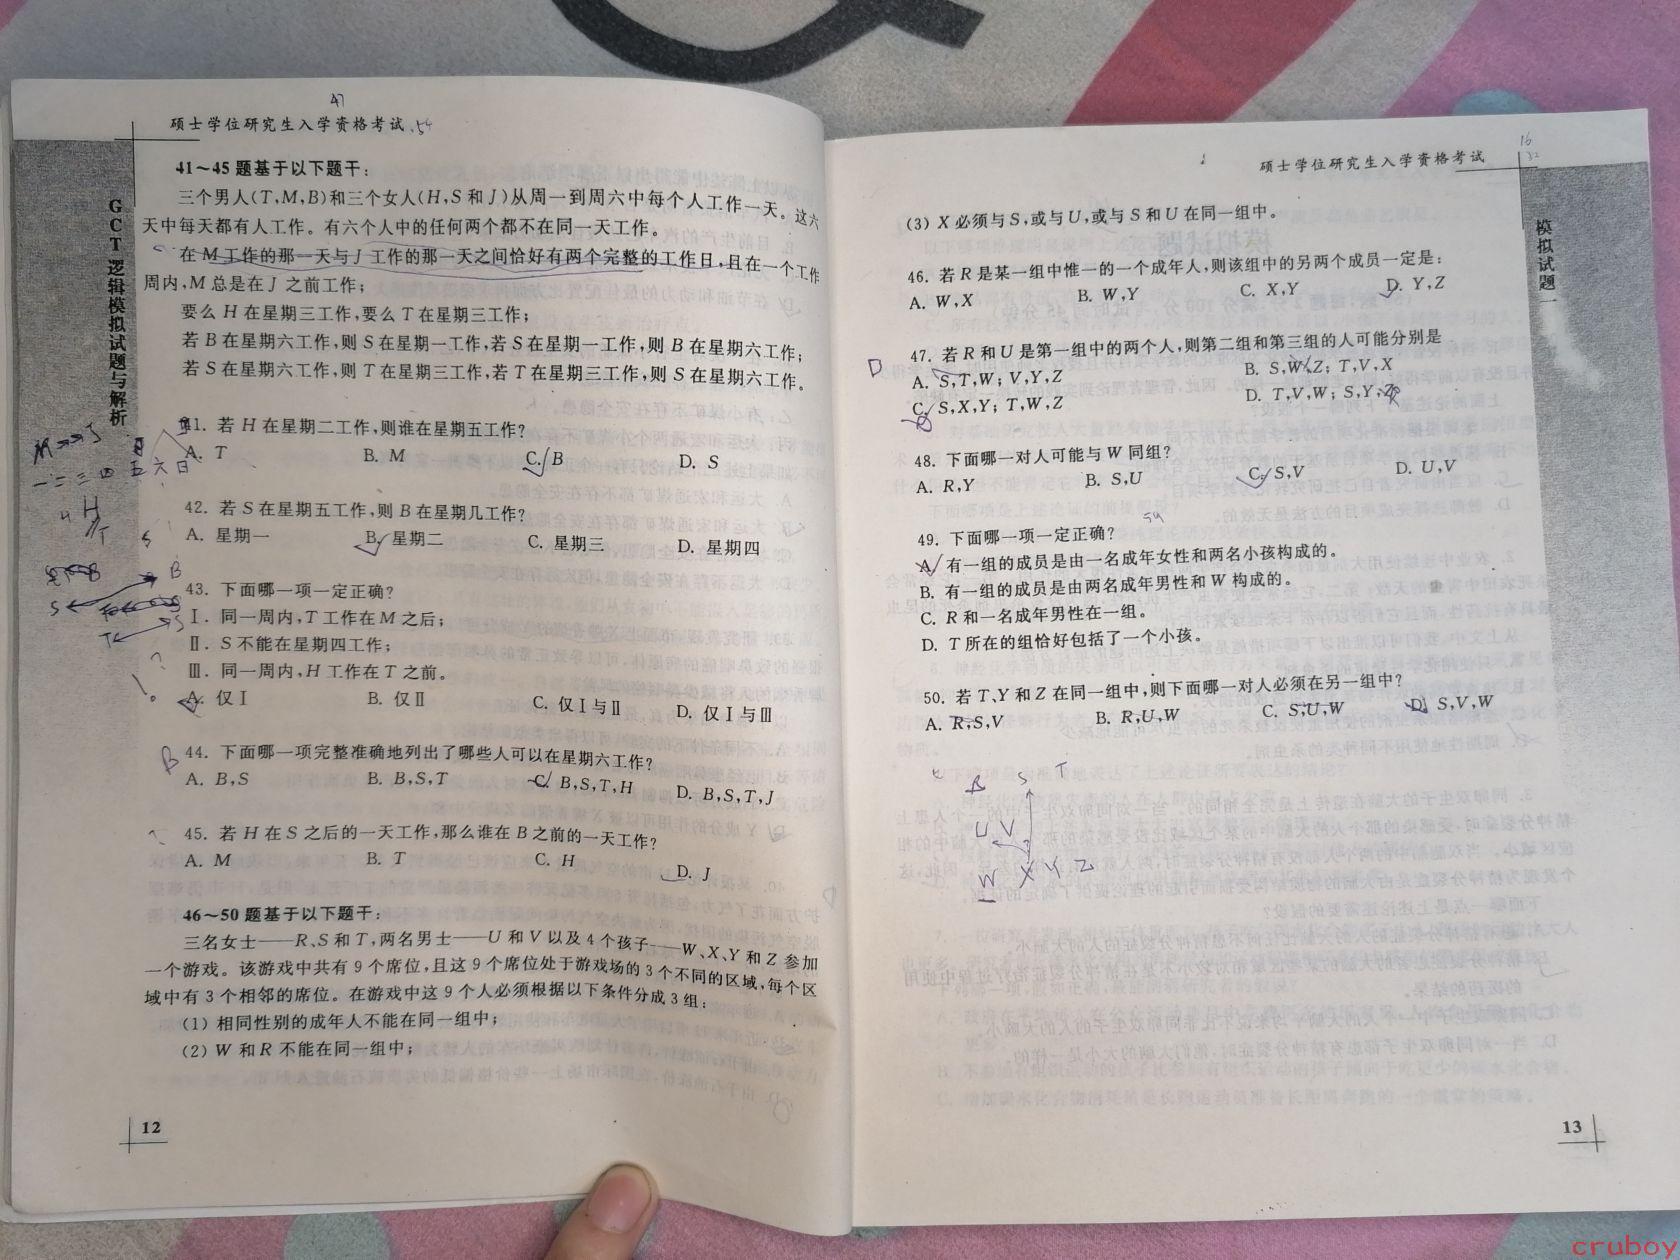 47
硕士学位研究生入学资格考试 .54
GCT 逻辑模拟试题与解析
41～45 题基于以下题干:
三个男人(T,M,B)和三个女人(H,S 和 J)从周一到周六中每个人工作一天。这六
天中每天都有人工作。有六个人中的任何两个都不在同一天工作。
在 M 工作的那一天与 J 工作的那一天之间恰好有两个完整的工作日,且在一个工作
周内,M 总是在 J 之前工作;
要么 H 在星期三工作,要么 T 在星期三工作;
若 B 在星期六工作,则 S 在星期一工作,若 S 在星期一工作,则 B 在星期六工作;
若 S 在星期六工作,则 T 在星期三工作,若 T 在星期三工作,则 S 在星期六工作。
41. 若 H 在星期二工作,则谁在星期五工作?
A. T B. M C. B D. S
M J
一二三四五六日
42. 若 S 在星期五工作,则 B 在星期几工作?
A. 星期一 B. 星期二 C. 星期三 D. 星期四
H
T
S
B
43. 下面哪一项一定正确?
Ⅰ. 同一周内,T 工作在 M 之后;
Ⅱ. S 不能在星期四工作;
Ⅲ. 同一周内,H 工作在 T 之前。
A. 仅Ⅰ B. 仅Ⅱ C. 仅Ⅰ与Ⅱ D. 仅Ⅰ与Ⅲ
B
44. 下面哪一项完整准确地列出了哪些人可以在星期六工作?
A. B,S B. B,S,T C. B,S,T,H D. B,S,T,J
45. 若 H 在 S 之后的一天工作,那么谁在 B 之前的一天工作?
A. M B. T C. H D. J
46～50 题基于以下题干:
三名女士——R、S 和 T,两名男士——U 和 V 以及 4 个孩子——W、X、Y 和 Z 参加
一个游戏。该游戏中共有 9 个席位,且这 9 个席位处于游戏场的 3 个不同的区域,每个区
域中有 3 个相邻的席位。在游戏中这 9 个人必须根据以下条件分成 3 组:
(1) 相同性别的成年人不能在同一组中;
(2) W 和 R 不能在同一组中;
12
16
32
硕士学位研究生入学资格考试
模拟试题一
(3) X 必须与 S,或与 U,或与 S 和 U 在同一组中。
46. 若 R 是某一组中惟一的一个成年人,则该组中的另两个成员一定是:
A. W,X B. W,Y C. X,Y D. Y,Z
47. 若 R 和 U 是第一组中的两个人,则第二组和第三组的人可能分别是
D
A. S,T,W; V,Y,Z B. S,W,Z; T,V,X
C. S,X,Y; T,W,Z D. T,V,W; S,Y,Z
48. 下面哪一对人可能与 W 同组?
A. R,Y B. S,U C. S,V D. U,V
54
49. 下面哪一项一定正确?
A. 有一组的成员是由一名成年女性和两名小孩构成的。
B. 有一组的成员是由两名成年男性和 W 构成的。
C. R 和一名成年男性在一组。
D. T 所在的组恰好包括了一个小孩。
50. 若 T,Y 和 Z 在同一组中,则下面哪一对人必须在另一组中?
A. R,S,V B. R,U,W C. S,U,W D. S,V,W
S T
U V
W X Y Z
13
cruboy